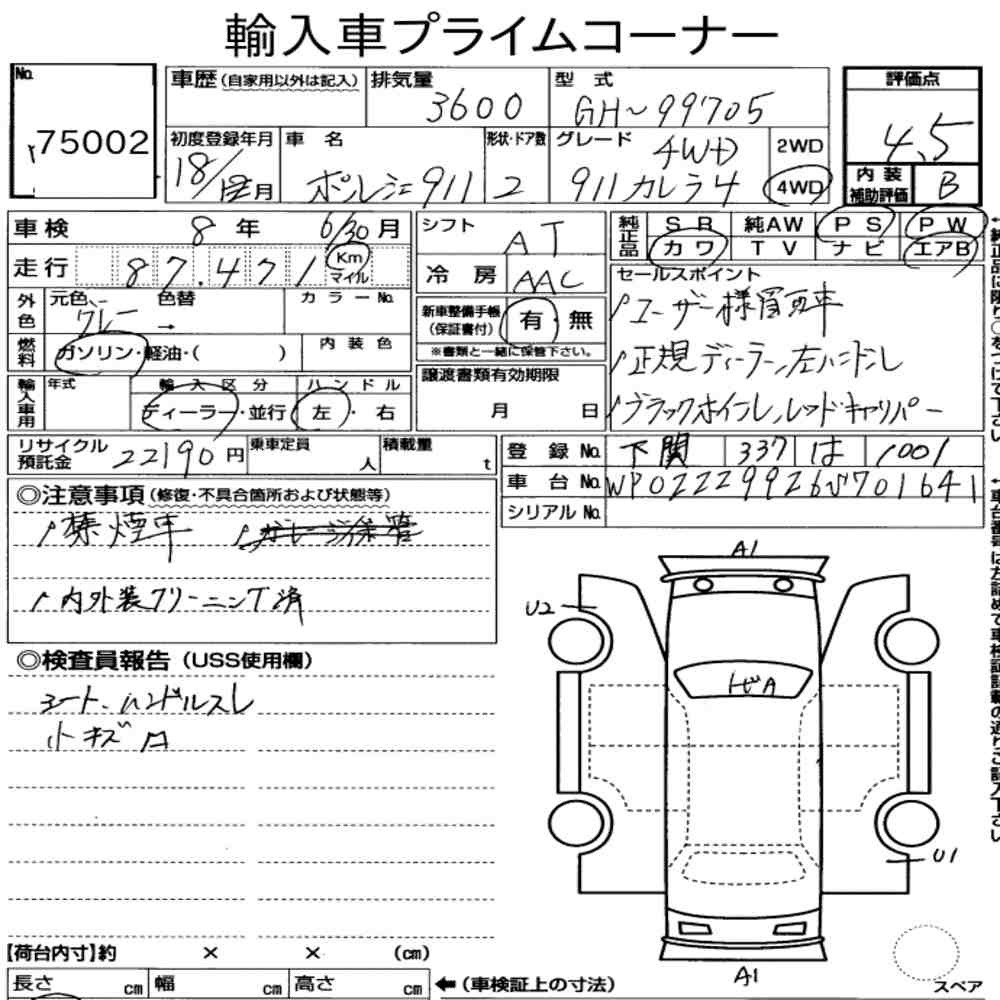 輸入車プライムコーナー
No. 75002
車歴 (自家用以外は記入)
排気量 3600
型式 GH-99705
評価点 4.5
初度登録年月 18/12月
車名 ポルシェ911
形状・ドア数 2
グレード 4WD 911カレラ4
2WD
4WD
内装補助評価 B
車検 8年 6/30月
走行 87.471 Km マイル
シフト AT
冷房 AAC
純正品 SR 純AW PS PW
カワ TV ナビ エアB
外色 元色 グレー → 色替
カラーNo.
新車整備手帳 (保証書付) 有・無
※書類と一緒に保管下さい。
セールスポイント
ユーザー様買取車
正規ディーラー,左ハンドル
ブラックホイール,レッドキャリパー
燃料 ガソリン・軽油・( )
内装色
譲渡書類有効期限
月 日
輸入車用 年式
輸入区分 ディーラー・並行
ハンドル 左・右
リサイクル預託金 22190円
乗車定員 人
積載量 t
登録No. 下関 337 は 1001
車台No. WP0ZZZ99Z6S701641
シリアルNo.
◎注意事項 (修復・不具合箇所および状態等)
禁煙車 ガレージ保管
内外装クリーニング済
◎検査員報告 (USS使用欄)
シート、ハンドルスレ
小キズ
A1
U2
トビA
U1
A1
スペア
【荷台内寸】約 × × (cm)
長さ cm 幅 cm 高さ cm
←(車検証上の寸法)
←純正品は限り○をつけて下さい
←車台番号は左詰めで車検証記載の通りご記入下さい